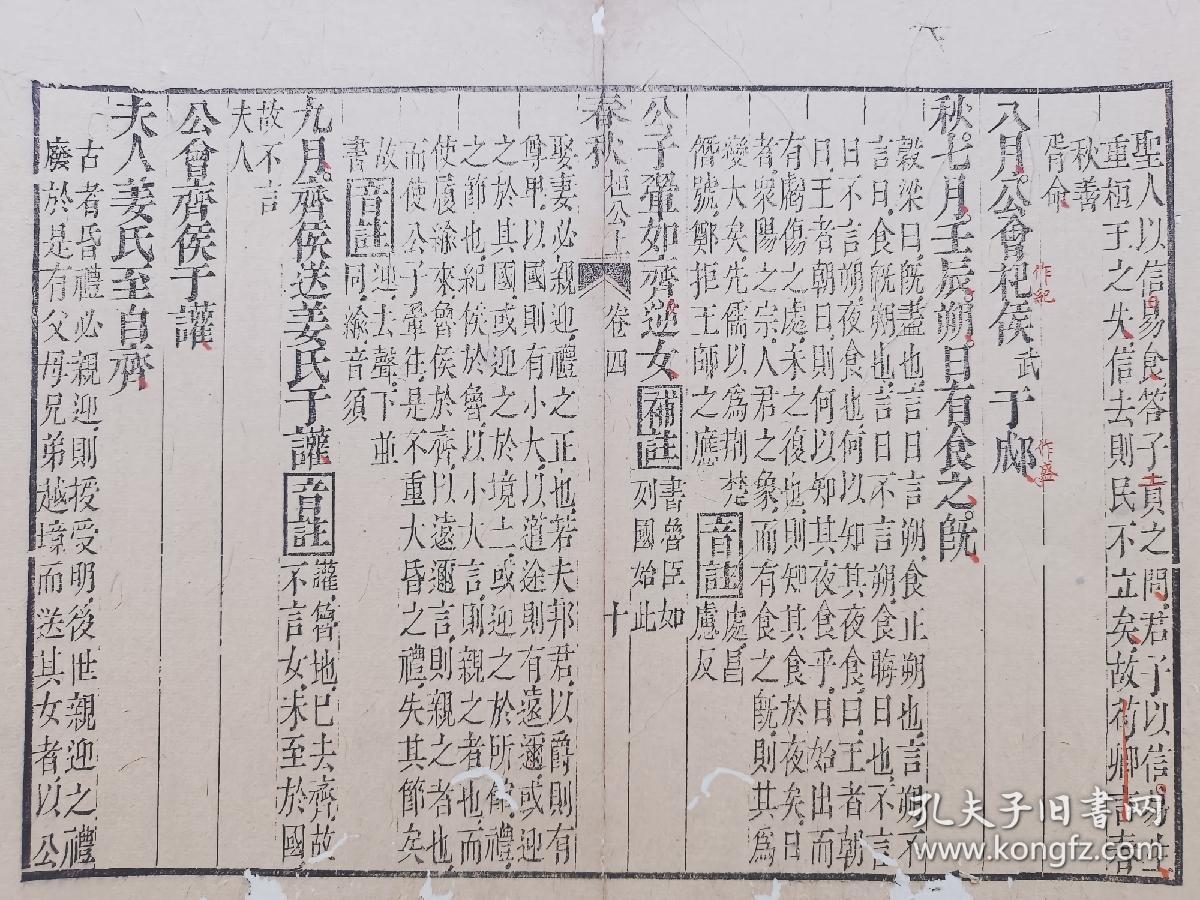 聖人以信易食答子貢之問君子以信易生
重桓王之失信去則民不立矣故荀卿言春
秋善
胥命
八月公會杞侯武于郕
作紀
作盛
秋七月壬辰朔日有食之旣
穀梁曰旣盡也言日言朔食正朔也言朔不
言日食旣朔也言日不言朔食晦日也不言
日不言朔夜食也何以知其夜食曰王者朝
日王者朝日則何以知其夜食乎曰始出而
有虧傷之處未之復也則知其食於夜矣日
者衆陽之宗人君之象而有食之旣則其爲
變大矣先儒以爲荆楚
僭號鄭拒王師之應
音註處昌
慮反
公子翬如齊逆女補註書魯臣如
列國始此
春秋 桓公上 卷四 十
娶妻必親迎禮之正也若夫邦君以爵則有
尊卑以國則有小大以道途則有遠邇或迎
之於其國或迎之於境上或迎之於所館禮
之節也紀侯於魯以小大言則親之者也而
使履緰來魯侯於齊以遠邇言則親之者也
而使公子翬往是不重大昏之禮失其節矣
故
書
音註迎去聲下並
同緰音須
九月齊侯送姜氏于讙音註讙魯地已去齊故
不言女未至於國
故不言
夫人
公會齊侯于讙
夫人姜氏至自齊
古者昏禮必親迎則授受明後世親迎之禮
廢於是有父母兄弟越境而送其女者以公
孔夫子旧书网
www.kongfz.com